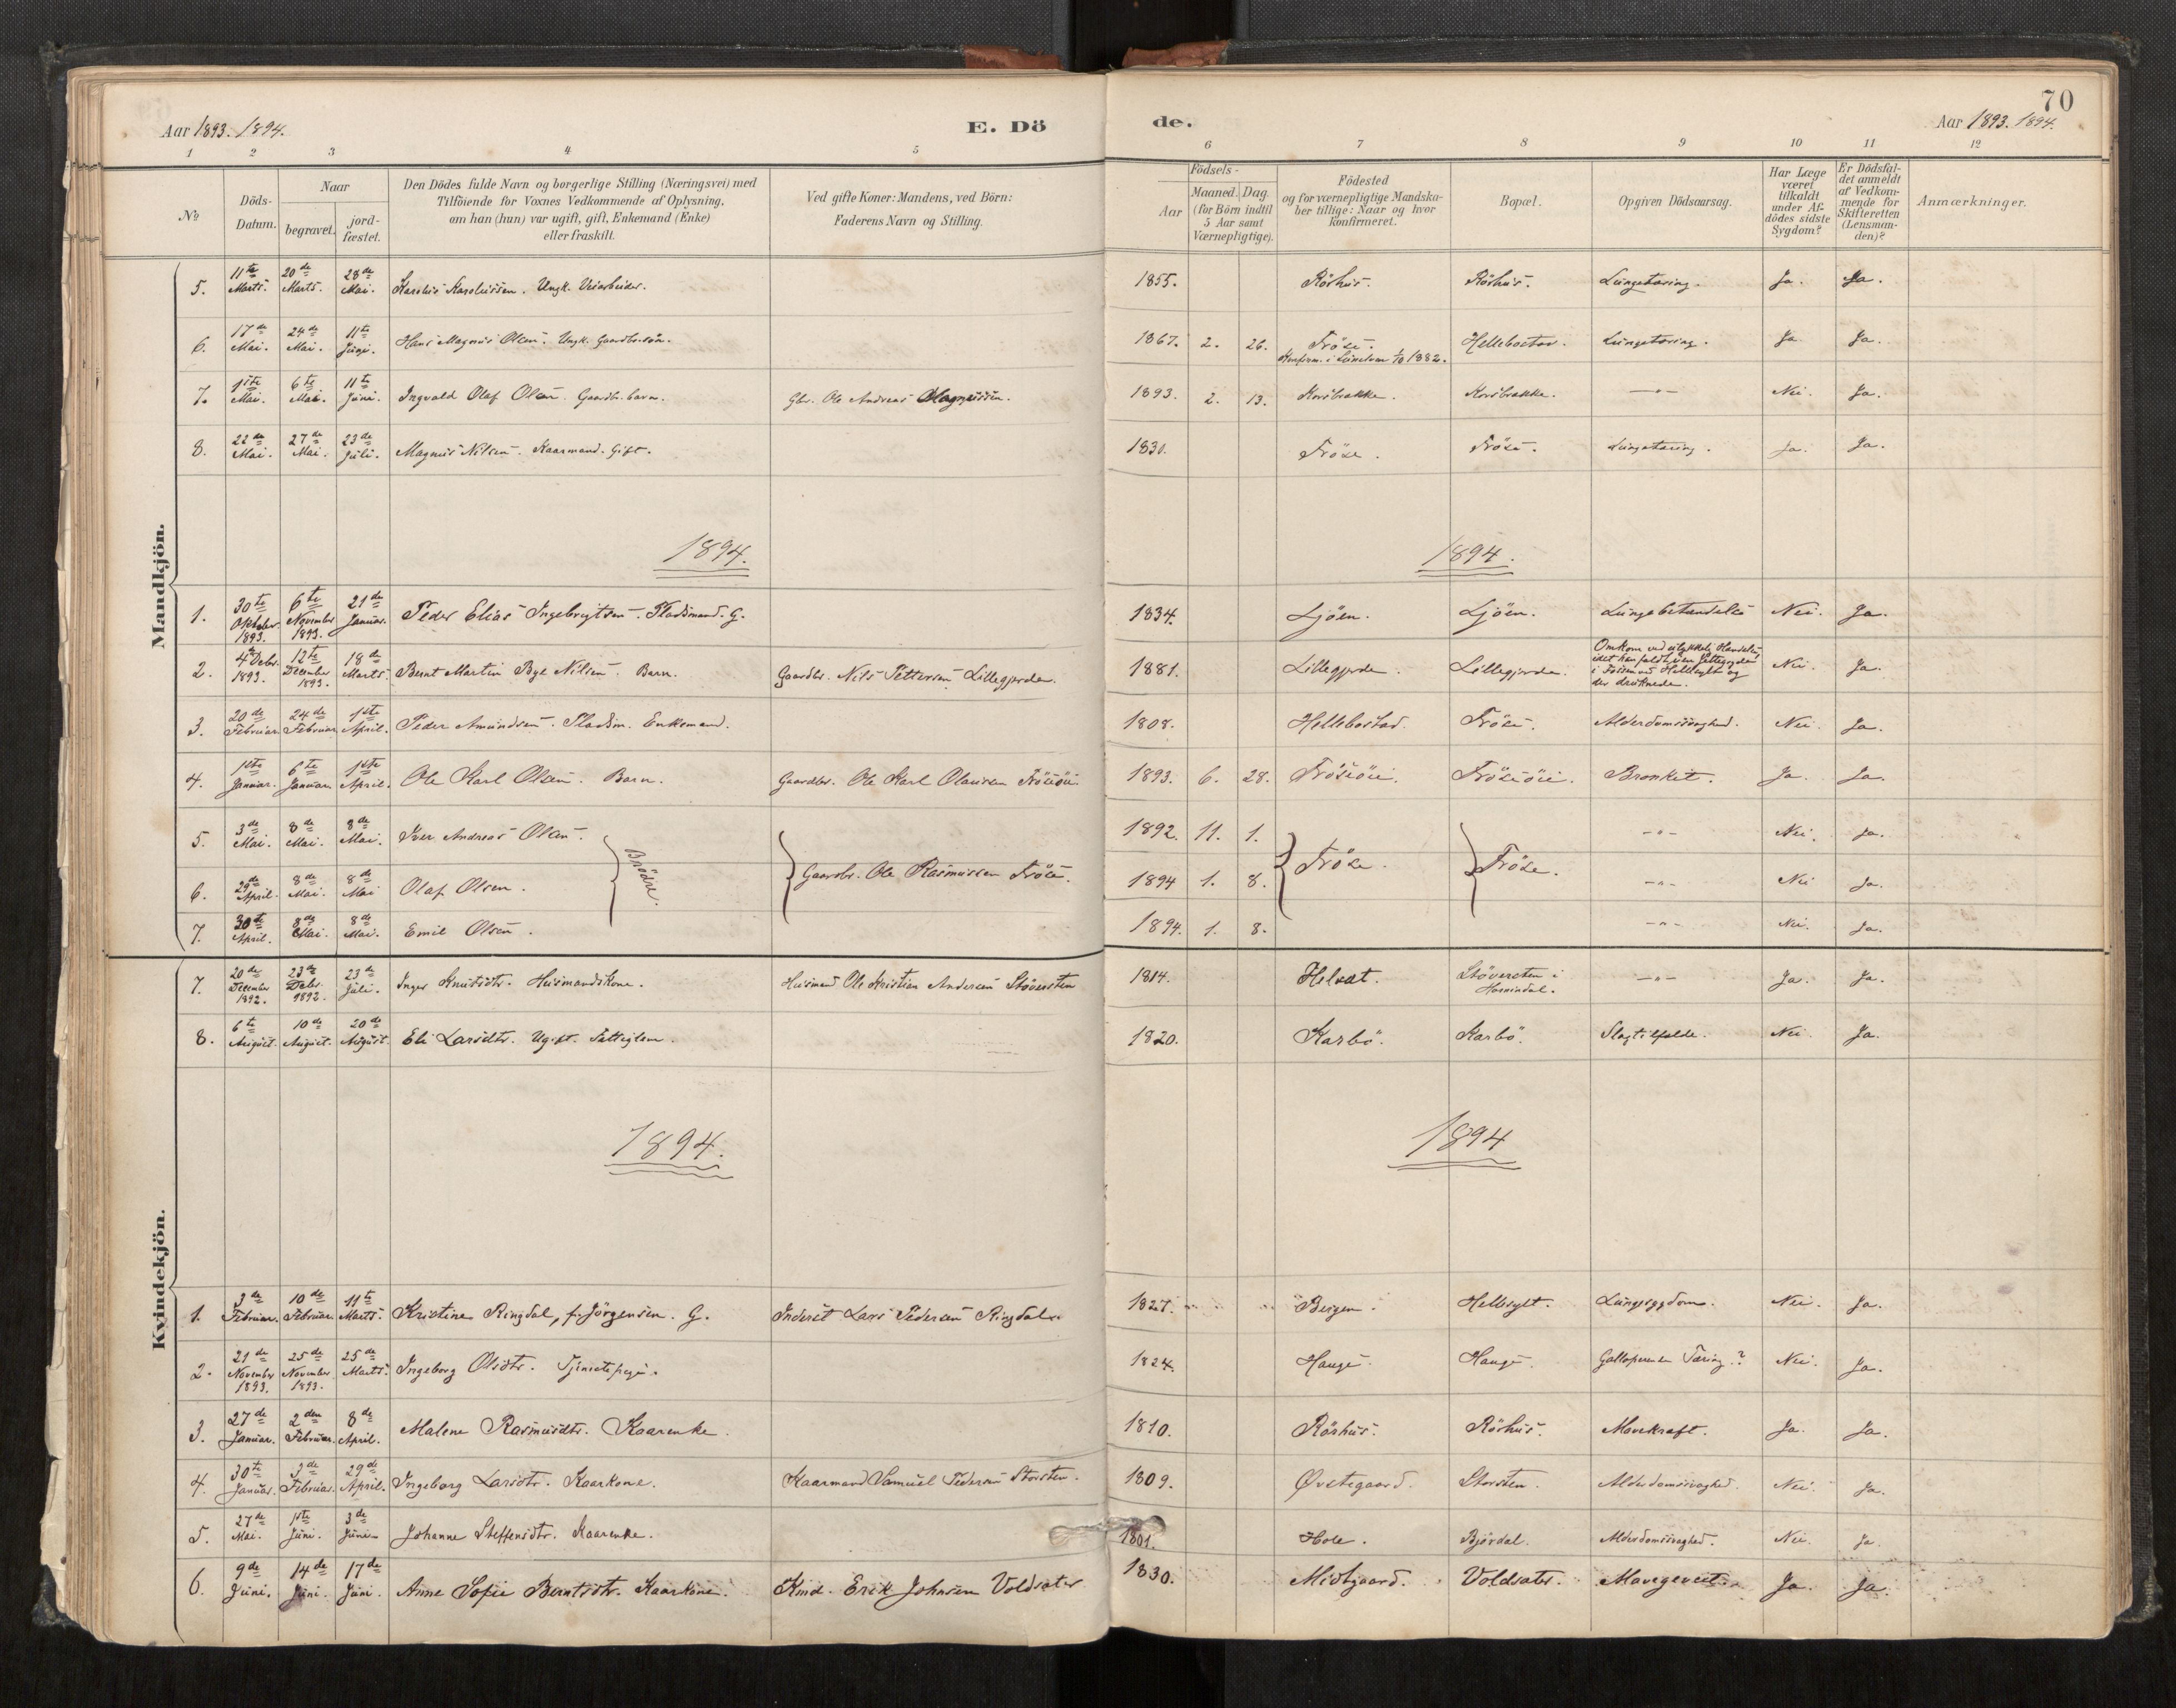 Aar 1893. 1894.
E. Dö
de.
70
Aar 1893. 1894.
1 2 3 4 5 6 7 8 9 10 11 12
№
Döds-
Datum.
Naar
begravet.
jord-
fæstet.
Den Dödes fulde Navn og borgerlige Stilling (Næringsvei) med
Tilföiende for Voxnes Vedkommende af Oplysning,
om han (hun) var ugift, gift, Enkemand (Enke)
eller fraskilt.
Ved gifte Koner: Mandens, ved Börn:
Faderens Navn og Stilling.
Födsels-
Aar
Maaned. Dag.
(for Börn indtil
5 Aar samt
Værnepligtige).
Födested
og for værnepligtige Mandska-
ber tillige: Naar og hvor
konfirmeret.
Bopæl.
Opgiven Dödsaarsag.
Har Læge
været
tilkaldt
under Af-
dödes sidste
Sygdom?
Er Dödsfal-
det anmeldt
af Vedkom-
mende for
Skifteretten
(Lensman-
den)?
Anmærkninger.
Mandkjön.
5. 11te Marts. 20de Marts. 28de Mai. Karolus Karolussen. Ungk. Veiarbeider. 1855. Röshus. Röshus. Lungetæring. Ja. Ja.
6. 17de Mai. 24de Mai. 11te Juni. Hans Magnus Olsen. Ungk. Gaardbr.søn. 1867. 2. 26. Fröse. Hellebostad. Lungetæring. Ja. Ja.
Konfirm. i 1882.
7. 1ste Mai. 6te Mai. 11te Juni. Ingvald Olaf Olsen. Gaardb. barn. Gbr. Ole Andreas Magnussen. 1893. 2. 13. Korsbrække. Korsbrække. —"— Nei. Ja.
8. 22de Mai. 27de Mai. 23de Juli. Magnus Nilsen. Kaarmand. Gift. 1830. Fröse. Fröse. Lungetæring. Ja. Ja.
1894. 1894.
1. 30te Oktober 1893. 6te November 1893. 21de Januar. Peder Elias Ingebrigtsen. Pladsmand. G. 1834. Ljöen. Ljöen. Lungebetændelse Nei. Ja.
2. 4de Debr. 1893. 12te December 1893. 18de Marts. Bernt Martin Bye Nilsen. Barn. Gaardbr. Nils Pettersen Lillegjerde. 1881. Lillegjerde. Lillegjerde. Omkom ved ulykkelig Hændelse
idet han faldt i en Jettegryde
i Fossen ved Hellesylt og
der druknede. Nei. Ja.
3. 20de Februar. 24de Februar. 1ste April. Peder Amundsen. Pladsm. Enkemand. 1808. Hellebostad. Fröse. Alderdomssvaghed. Nei. Ja.
4. 1ste Januar. 6te Januar. 1ste April. Ole Karl Olsen. Barn. Gaardbr. Ole Karl Olaussen Frösöie. 1893. 6. 28. Frösöie. Frösöie. Bronkit. Ja. Ja.
5. 3de Mai. 8de Mai. 8de Mai. Iver Andreas Olsen. 1892. 11. 1. —"— Nei. Ja.
6. 29de April. 8de Mai. 8de Mai Olaf Olsen. Brödre. Gaardbr. Ole Rasmussen Fröse. 1894 1. 8. Fröse. Fröse. —"— Nei Ja.
7. 30te April. 8de Mai. 8de Mai. Emil Olsen. 1894. 1. 8. —"— Nei. Ja.
Kvindekjön.
7. 20de December 1892. 23de Debr. 1892. 23de Juli. Inger Knutsdtr. Husmandskone. Husmand Ole Kristian Andersen Störesten 1814. Helset. Störesten i
Hornindal. —"— Ja. Ja.
8. 6te August. 10de August. 20de August. Eli Larsdtr. Ugift. Fattiglem. 1820. Karbö. Karbö. Slagtilfælde. Nei. Ja.
1894. 1894
1. 3de Februar. 10de Februar. 11te Marts. Kristine Ringdal, f. Jörgensen. G. Inderst Lars Pedersen Ringdal. 1827. Bergen. Hellesylt. Lungesygdom. Nei. Ja.
2. 21de November 1893. 25de November 1893. 25de Marts. Ingeborg Olsdtr. Tjenestepige. 1824. Hauge. Hauge. Galloperende Tæring? Nei. Ja.
3. 27de Januar. 2den Februar. 8de April. Malene Rasmusdtr. Kaarenke. 1810. Röshus. Röshus. Mavekræft. Ja. Ja.
4. 30te Januar. 3de Februar. 29de April. Ingeborg Larsdtr. Kaarkone. Kaarmand Samuel Pedersen Storsten. 1809. Øvstegaard. Storsten. Alderdomssvaghed. Nei. Ja.
5. 27de Mai. 1ste Juni. 3de Juni. Johanne Steffensdtr. Kaarenke. 1801. Hole. Björdal. Alderdomssvaghed. Nei. Ja.
6. 9de Juni. 14de Juni. 17de Juni. Anne Sofie Berntsdtr. Kaarkone. Kmd. Erik Johnsen Voldsæter 1830. Midtgaard. Voldsæter. Ja. Ja.